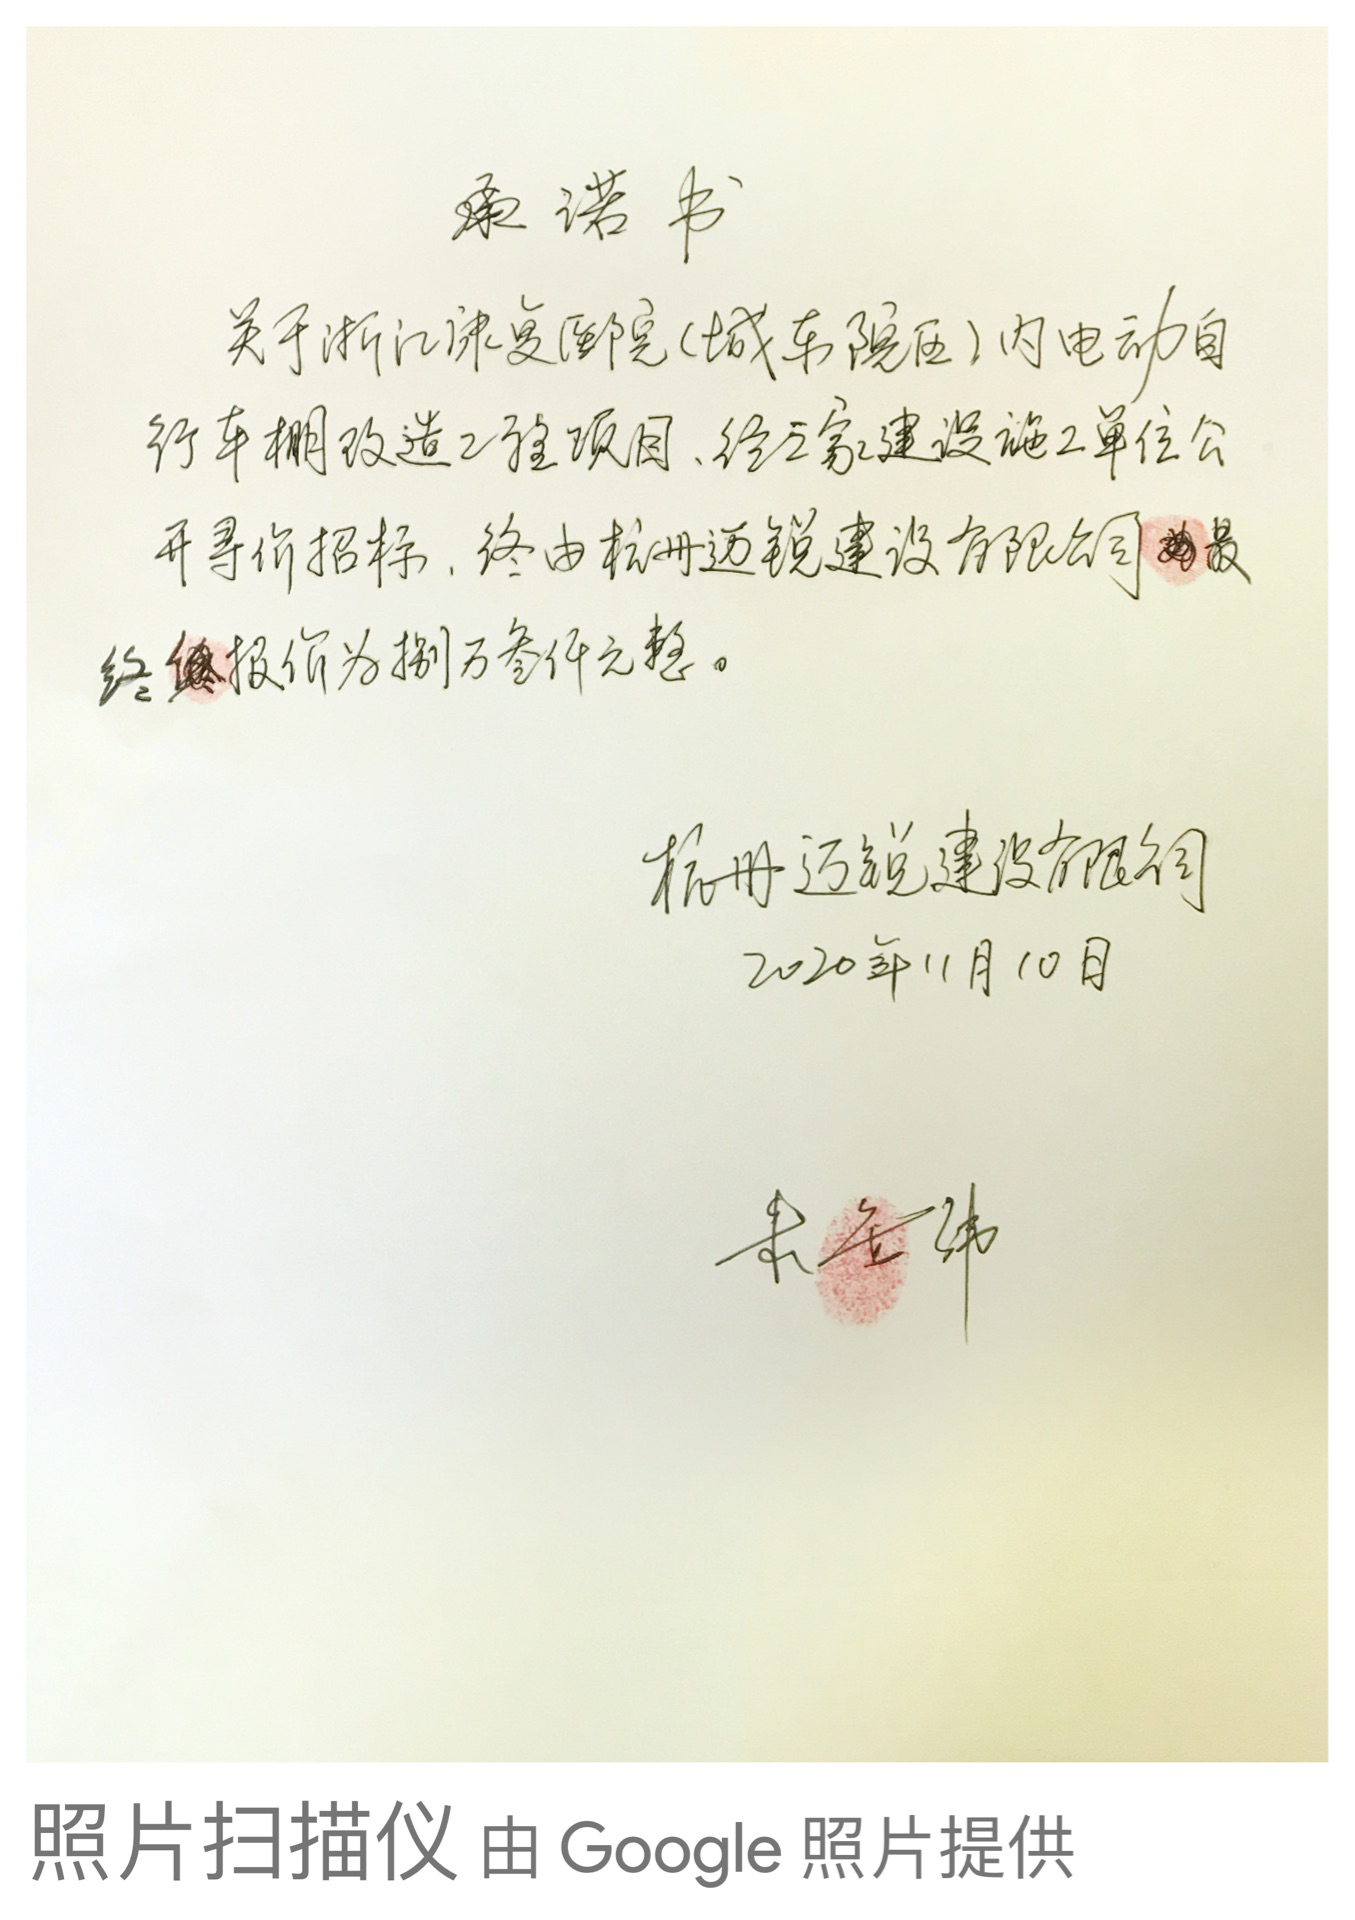 承诺书
关于浙江康复医院(城东院区)内电动自
行车棚改造工程项目、经三家建设施工单位公
开寻价招标、终由杭州迈锐建设有限公司最
终报价为捌万叁仟元整。
杭州迈锐建设有限公司
2020年11月10日
朱金伟
照片扫描仪 由 Google 照片提供